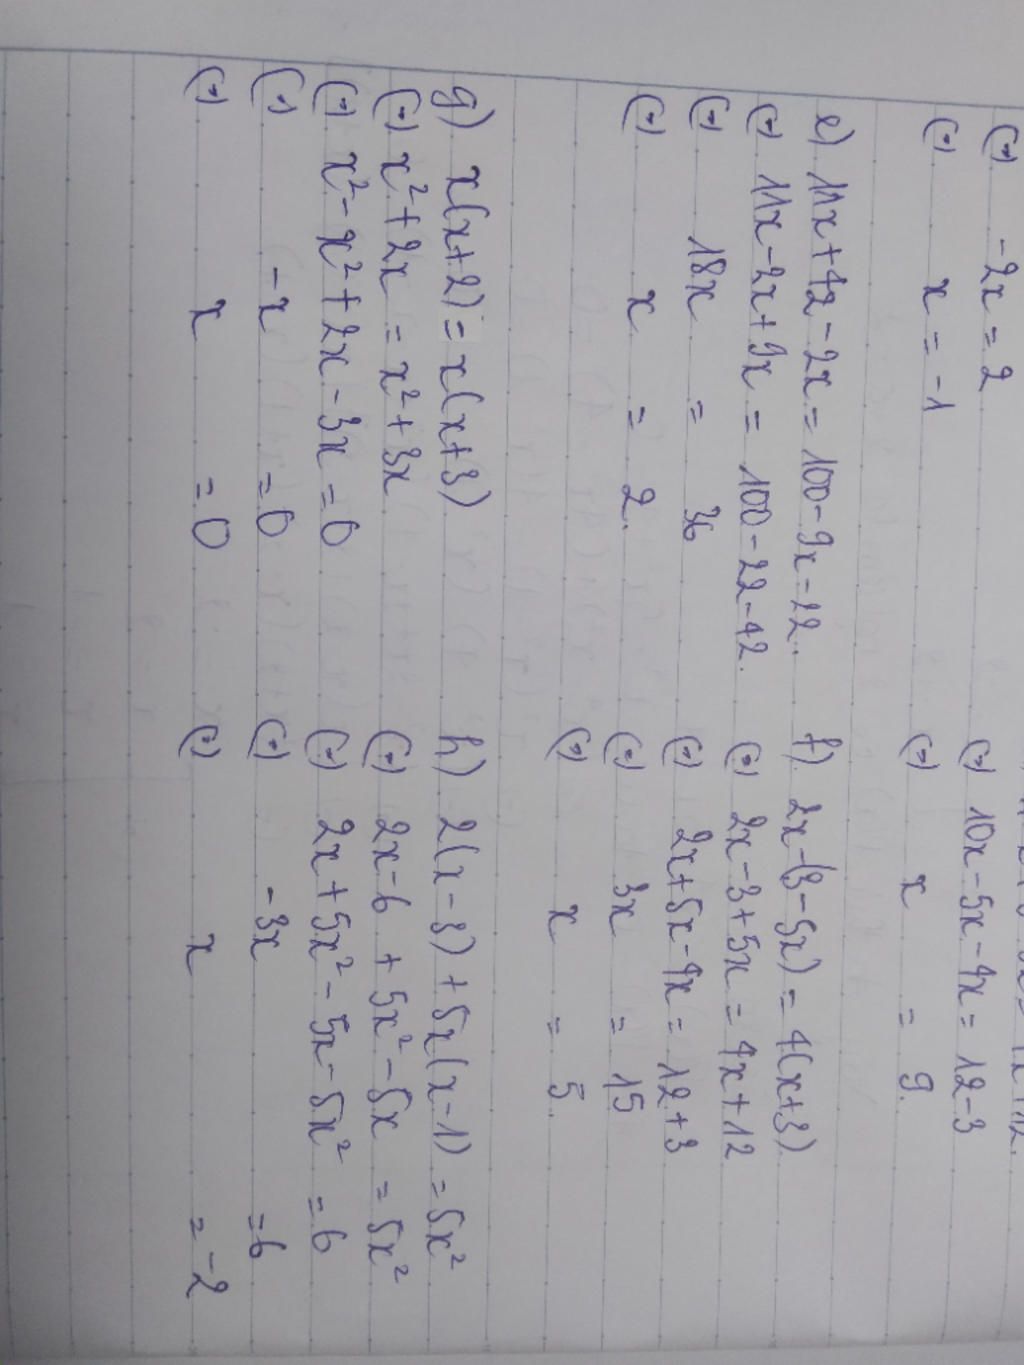 (-) -2x = 2
(-) x = -1
(-) 10x - 5x - 4x = 12 - 3
(-) x = 9.
e) 11x + 42 - 2x = 100 - 9x - 22.
(-) 11x - 2x + 9x = 100 - 22 - 42.
(-) 18x = 36
(-) x = 2.
f) 2x - (3 - 5x) = 4(x + 3)
(-) 2x - 3 + 5x = 4x + 12
(-) 2x + 5x - 4x = 12 + 3
(-) 3x = 15
(-) x = 5
g) x(x + 2) = x(x + 3)
(-) x² + 2x = x² + 3x
(-) x² - x² + 2x - 3x = 0
(-) -x = 0
(-) x = 0
h) 2(x - 3) + 5x(x - 1) = 5x²
(-) 2x - 6 + 5x² - 5x = 5x²
(-) 2x + 5x² - 5x - 5x² = 6
(-) -3x = 6
(-) x = -2